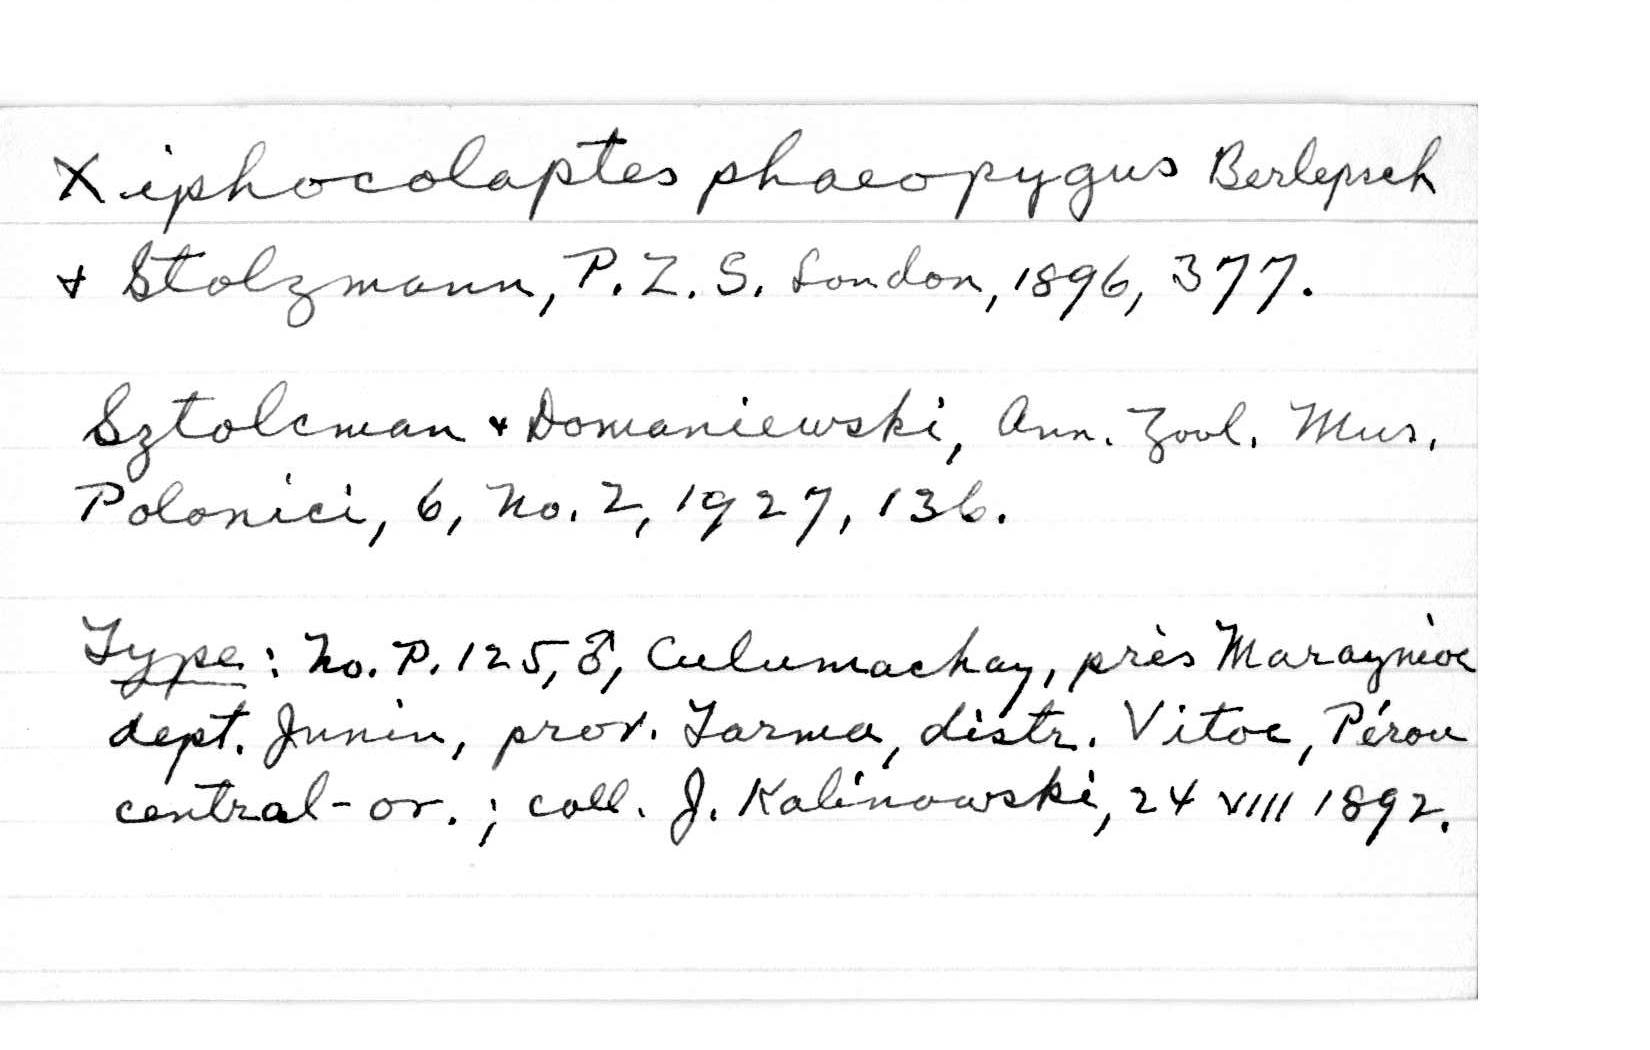 Xiphocolaptes phaeopygus Berlepsch
& Stolzmann, P. Z. S. London, 1896, 377.
Sztolcman & Domaniewski, Ann. Zool. Mus.
Polonici, 6, No. 2, 1927, 136.
Type: No. P. 125, ♂, Culumachay, près Maraynioc
dept. Junin, prov. Tarma, distr. Vitoc, Pérou
central-or.; coll. J. Kalinowski, 24 VIII 1892.